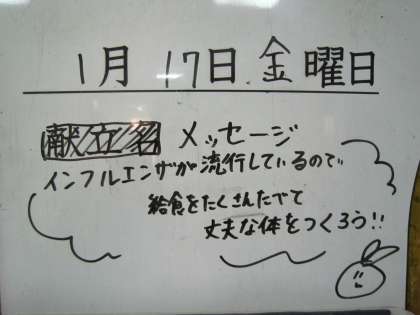 1月 17日 金曜日
献立名 メッセージ
インフルエンザが流行しているので
給食をたくさんたべて
丈夫な体をつくろう!!